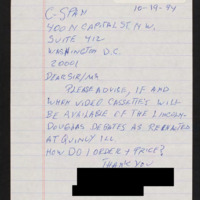 10-19-94
C-SPAN
400 N CAPITAL ST N.W.
SUITE 412
WASHINGTON D.C.
20001
DEAR SIR/MS
PLEASE ADVISE, IF AND
WHEN VIDEO CASSETTES WILL
BE AVAILABLE OF THE LINCOLN
DOUGLAS DEBATES AS REENACTED
AT QUINCY ILL.
HOW DO I ORDER + PRICE?
THANK YOU